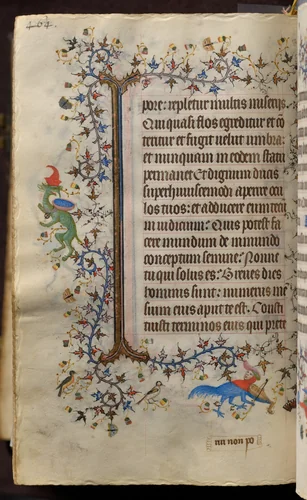 164.
pore: repletur multis miserijs.
Qui quasi flos egreditur et cō
teritur et fugit velut umbra:
et nunquam in eodem statu
permanet Et dignum ducis
super huiuscemodi aperire ocu
los tuos: et adducere eum tecū
in iudicium: Quis potest fa
cere mundum de inmundo
conceptum semine: Nonne
tu qui solus es: Breues dies
hominis sunt: numerus mē
sium eius aput te est. Consti
tuisti terminos eius qui prete
163
riri non po